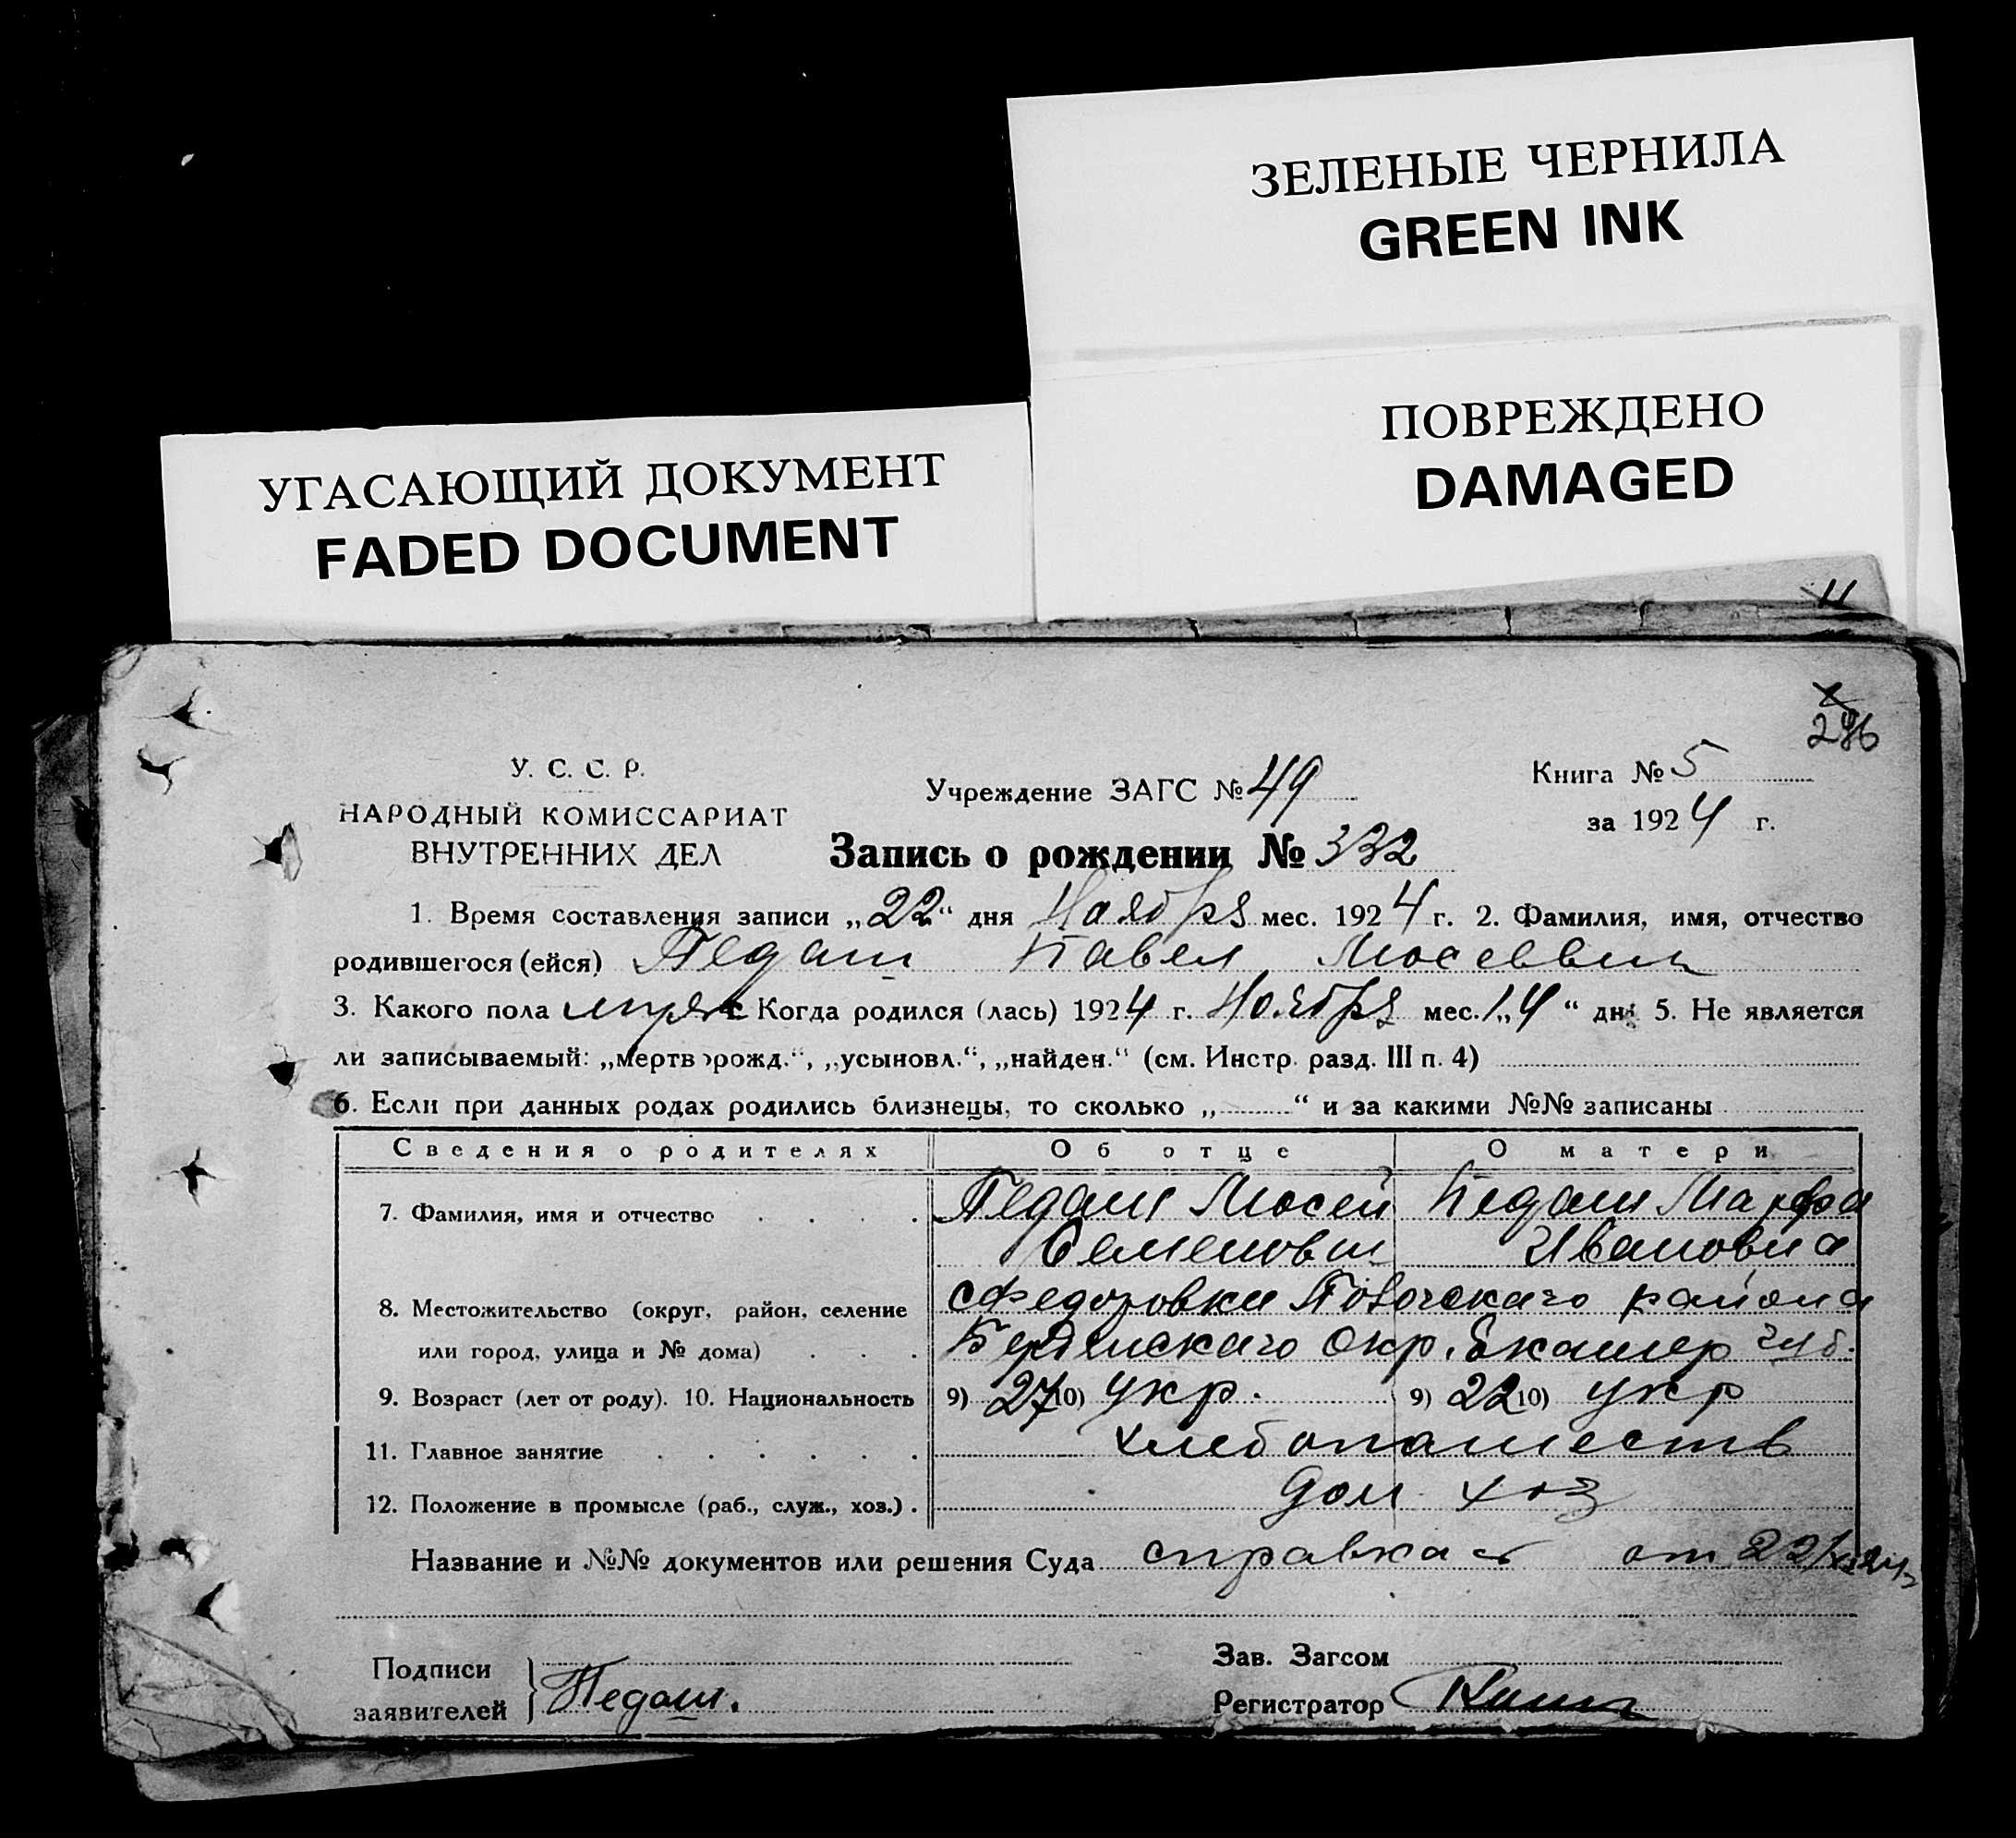 ЗЕЛЕНЫЕ ЧЕРНИЛА
GREEN INK
ПОВРЕЖДЕНО
DAMAGED
УГАСАЮЩИЙ ДОКУМЕНТ
FADED DOCUMENT
11
296
У. С. С. Р.
НАРОДНЫЙ КОМИССАРИАТ
ВНУТРЕННИХ ДЕЛ
Учреждение ЗАГС № 49
Книга № 5
за 1924 г.
Запись о рождении № 332
1. Время составления записи „22“ дня Ноября мес. 1924 г. 2. Фамилия, имя, отчество
родившегося (ейся) Педаш Павел Мосеевич
3. Какого пола муж Когда родился (лась) 1924 г. Ноября мес. „14“ дня 5. Не является
ли записываемый: „мертворожд.“, „усыновл.“, „найден.“ (см. Инстр. разд. III п. 4)
6. Если при данных родах родились близнецы, то сколько „ “ и за какими №№ записаны
Сведения о родителях Об отце О матери
7. Фамилия, имя и отчество Педаш Мосей Педаш Марфа
Семенович Ивановна
8. Местожительство (округ, район, селение с Федоровки района
или город, улица и № дома) Бердянскаго Окр. Екатер губ.
9. Возраст (лет от роду). 10. Национальность 9) 27 10) укр. 9) 22 10) укр
11. Главное занятие хлебопашеств
12. Положение в промысле (раб., служ., хоз.) дом хоз
Название и №№ документов или решения Суда справка от 22/XI 24
Подписи
заявителей Педаш.
Зав. Загсом
Регистратор